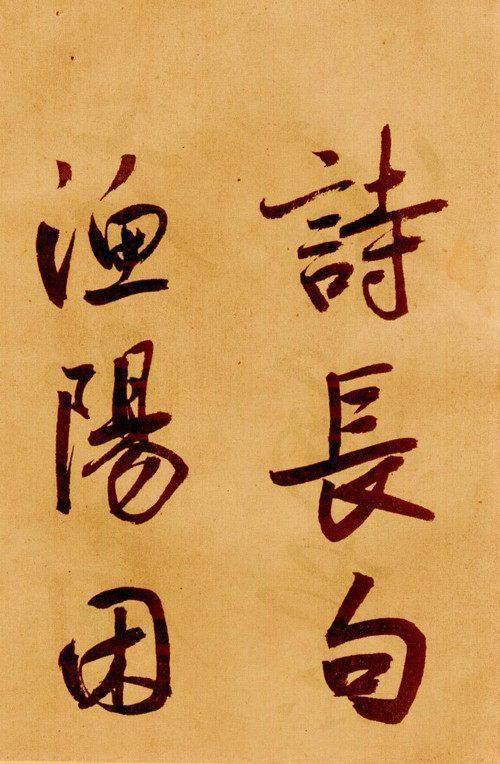 詩長句
漁陽困